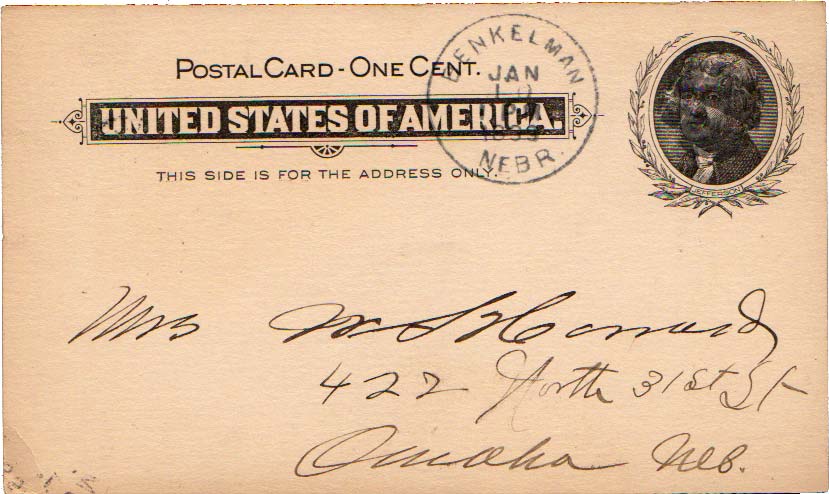 POSTAL CARD - ONE CENT.
UNITED STATES OF AMERICA.
THIS SIDE IS FOR THE ADDRESS ONLY.
BENKELMAN
JAN
NEBR.
JEFFERSON
Mrs W
422 North 31st St
Omaha Neb.